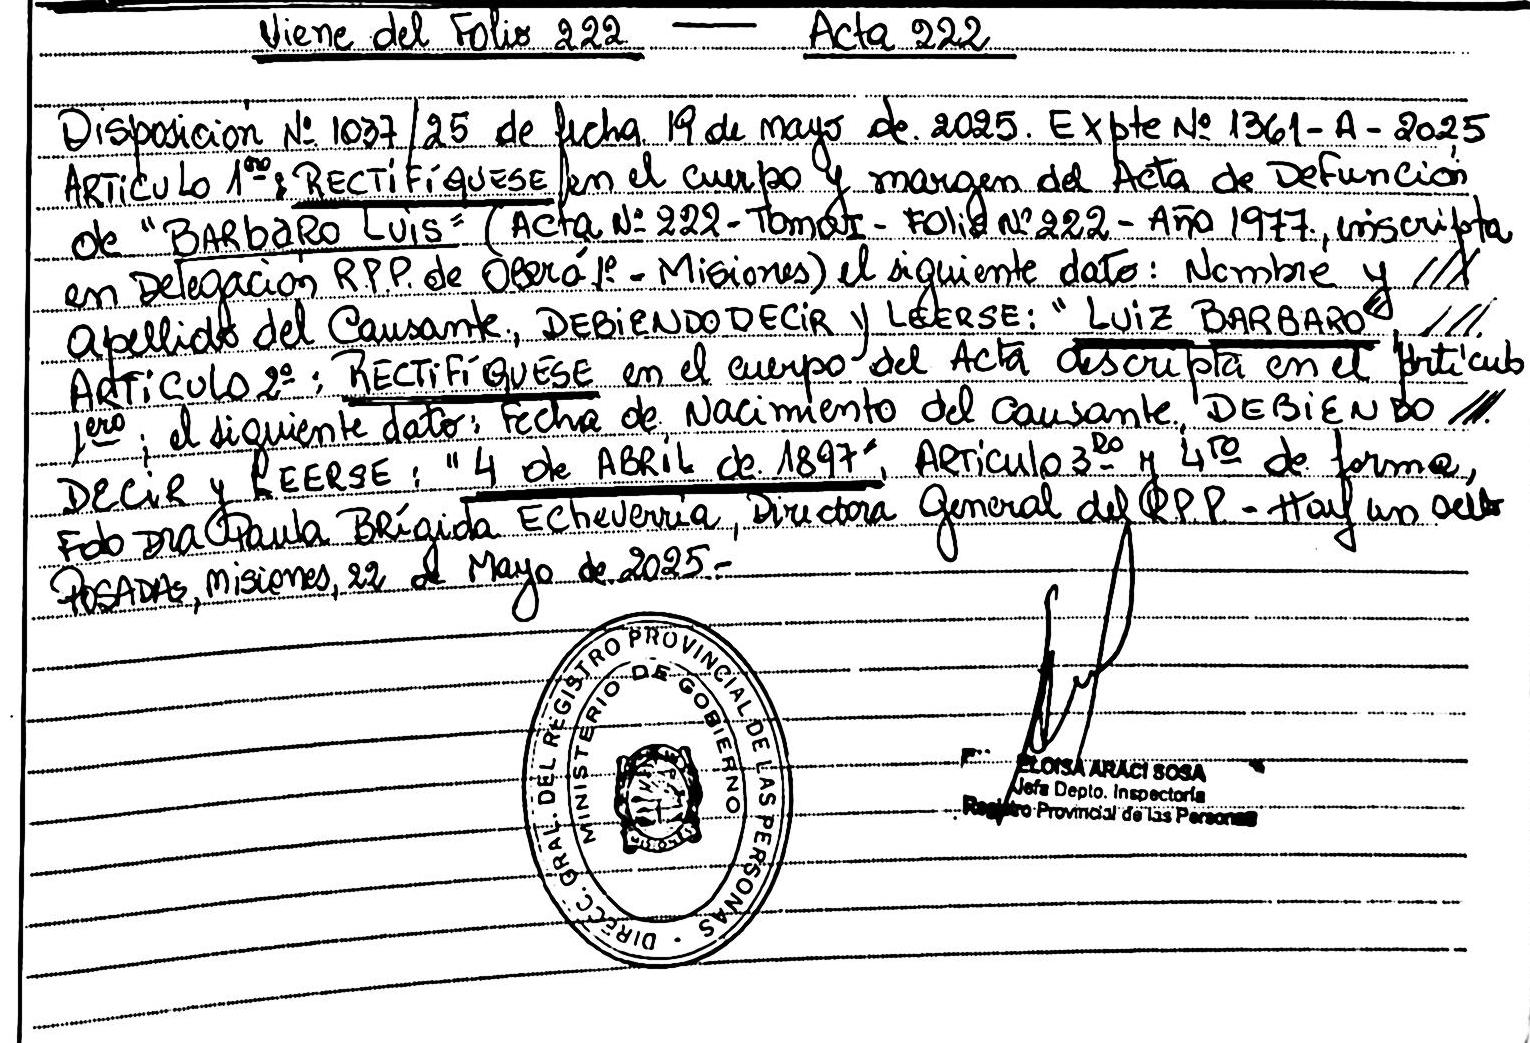 Viene del Folio 222 — Acta 222
Disposición Nº 1037/25 de fecha 19 de mayo de 2025. Expte Nº 1361-A-2025
ARTICULO 1ero: RECTIFÍQUESE en el cuerpo y margen del Acta de Defunción
de "BARBARO LUIS" (Acta Nº 222-Tomo I-Folio Nº 222-Año 1977, inscripta
en Delegación R.P.P. de Oberá 1º-Misiones) el siguiente dato: Nombre y ///
Apellido del Causante, DEBIENDO DECIR y LEERSE: "LUIZ BARBARO", ///.
ARTICULO 2º: RECTIFÍQUESE en el cuerpo del Acta descripta en el Artículo
1ero; el siguiente dato: Fecha de Nacimiento del Causante, DEBIENDO ///.
DECIR y LEERSE: "4 de ABRIL de 1897", ARTICULO 3ro y 4to de forma,
Fdo Dra Paula Brígida Echeverría, Directora General del R.P.P. - Hay un sello
POSADAS, Misiones, 22 de Mayo de 2025.-
DIRECC. GRAL. DEL REGISTRO PROVINCIAL DE LAS PERSONAS
MINISTERIO DE GOBIERNO
ELOISA ARACI SOSA
Jefa Depto. Inspectoría
Registro Provincial de las Personas